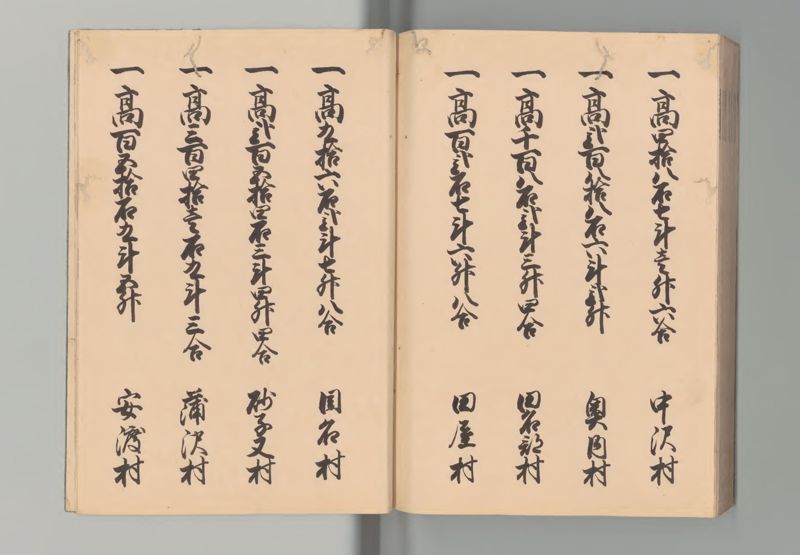 一高四拾八石七斗壱升六合 中沢村
一高弐百八拾八石六斗弐升 奥内村
一高千百八石弐斗三升四合 田名部村
一高百弐石七斗六升八合 田屋村
一高九拾六石弐斗七升八合 目名村
一高弐百五拾四石三斗四升四合 砂子又村
一高三百四拾壱石九斗三合 蒲沢村
一高百五拾石九斗五升 安渡村